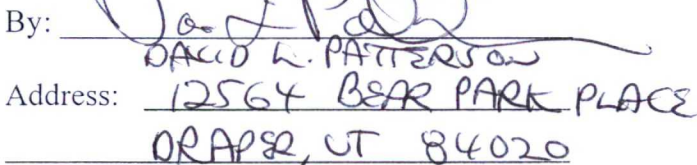 By:
DAVID W. PATTERSON
Address: 12564 BEAR PARK PLACE
DRAPER, UT 84020